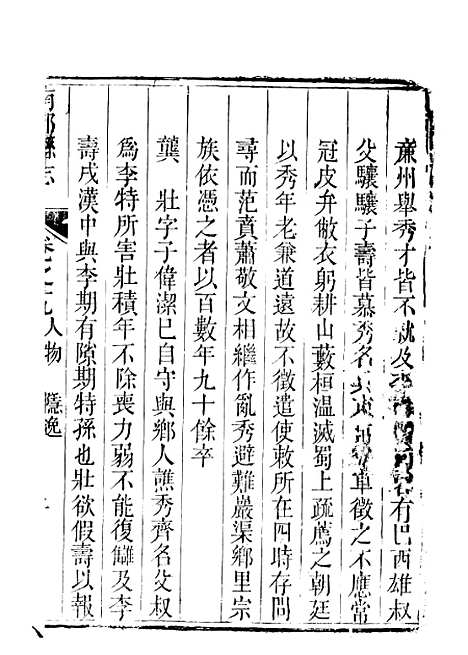 亷州舉秀才皆不就及有巴西雄叔
父驤驤子壽皆慕秀名車徵之不應常
冠皮弁敝衣躬耕山藪桓温滅蜀上疏薦之朝廷
以秀年老兼道遠故不徵遣使敕所在四時存問
尋而范賁蕭敬文相繼作亂秀避難巖渠鄉里宗
族依憑之者以百數年九十餘卒
龔　壯字子偉潔巳自守與鄉人譙秀齊名父叔
為李特所害壯積年不除喪力弱不能復讎及李
壽戍漢中與李期有隙期特孫也壯欲假壽以報
縣志　卷之　人物　隱逸